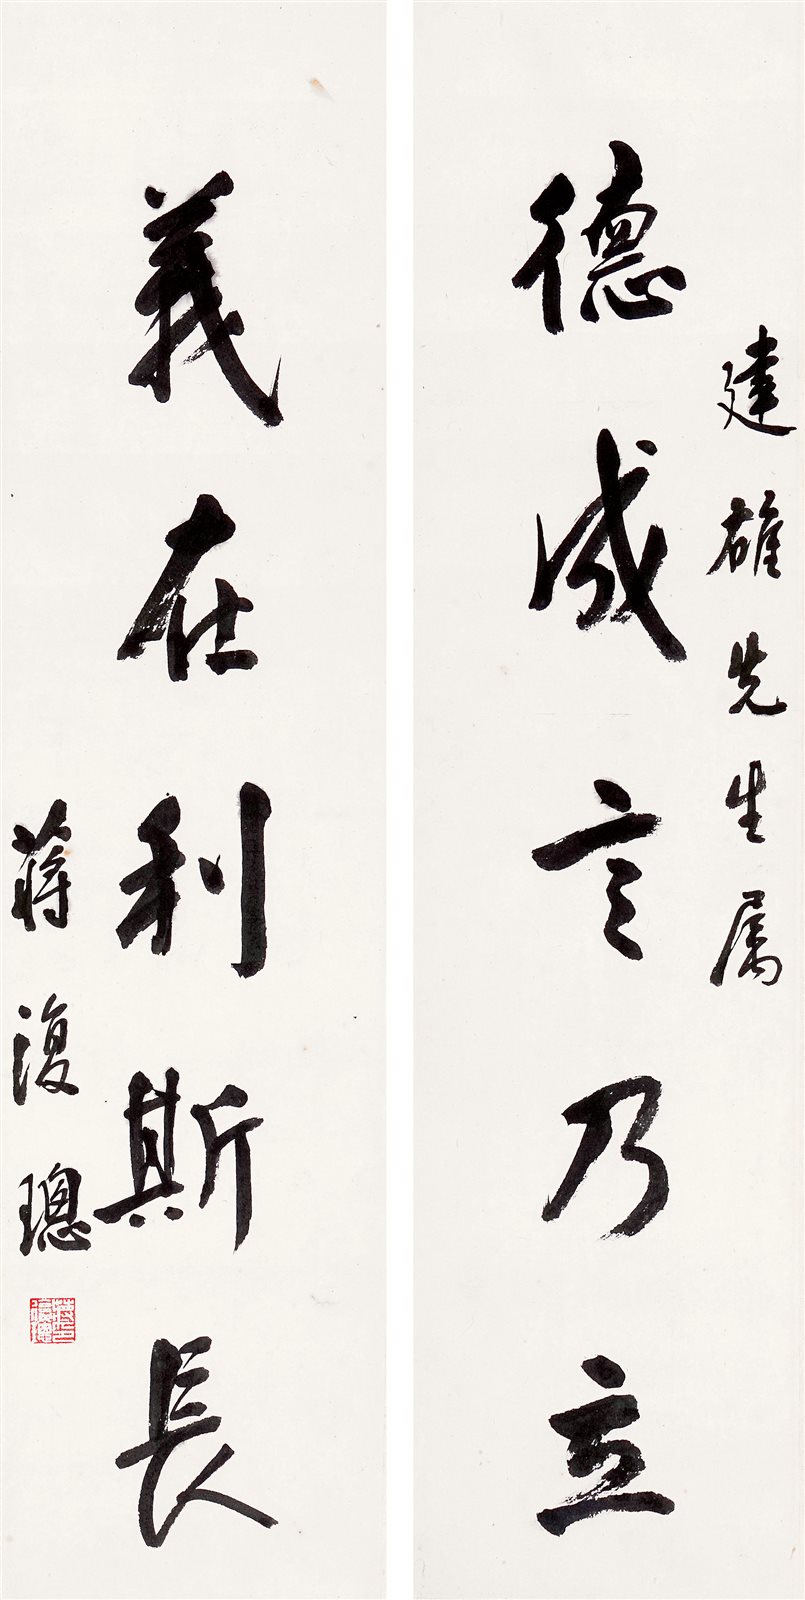 建雄先生属
德成言乃立
義在利斯長
蒋復璁